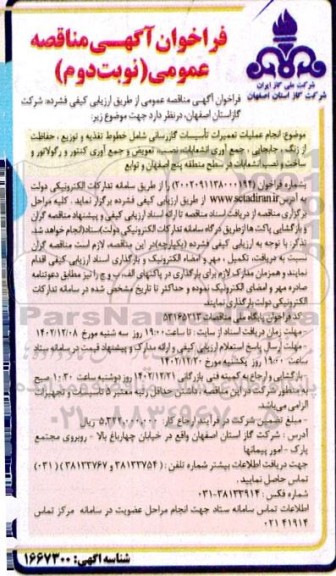 فراخوان آگهـی مناقصه
عمومی (نوبت دوم)
شرکت ملی گاز ایران
شرکت گاز استان اصفهان
فراخوان آگهـی مناقصه عمومی از طریق ارزیابی کیفی فشرده: شرکت
گاز استان اصفهان، در نظر دارد جهت موضوع زیر:
موضوع انجام عملیات تعمیرات تأسیسات گازرسانی شامل خطوط تغذیه و توزیع ، حفاظت
از زنگ ، جابجایی ، جمع آوری انشعابات، نصب، تعویض و جمع آوری کنتور و رگولاتور و
ساخت و نصب انشعابات در سطح منطقه پنج اصفهان و توابع
بشماره فراخوان (۲۰۰۲۰۹۱۱۳۸۰۰۰۱۹۴) را از طریق سامانه تدارکات الکترونیکی دولت
به آدرس www.setadiran.ir از طریق ارزیابی کیفی فشرده برگزار نماید . کلیه مراحل
برگزاری مناقصه از دریافت اسناد مناقصه تا ارائه اسناد ارزیابی کیفی و پیشنهاد مناقصه گران
و بازگشایی پاکت ها از طریق درگاه سامانه تدارکات الکترونیکی دولت(ستاد)انجام خواهد شد.
تذکر: با توجه به ارزیابی کیفی فشرده (یکپارچه)در این مناقصه، لازم است مناقصه گران
نسبت به دریافت، تکمیل ، مهر و امضاء الکترونیک و بارگذاری اسناد ارزیابی کیفی اقدام
نمایند و همزمان مدارک لازم برای بارگذاری در پاکتهای الف، ب و ج را نیز مطابق دعوتنامه
صادره مهر و امضای الکترونیک نموده و حداکثر تا تاریخ مشخص شده در سامانه تدارکات
الکترونیکی دولت بارگذاری نمایند.
کد فراخوان پایگاه ملی مناقصات:
- مهلت زمان دریافت اسناد از سایت : تا ساعت ۱۹:۰۰ روز سه شنبه مورخ ۱۴۰۲/۱۲/۰۸
- مهلت ارسال پاسخ استعلام ارزیابی کیفی و ارائه مدارک و پیشنهاد قیمت در سامانه ستاد
ساعت ۱۹:۰۰ روز یکشنبه مورخ ۱۴۰۲/۱۲/۲۰
- بازگشایی و ارجاع به کمیته فنی بازرگانی ۱۴۰۲/۱۲/۲۱ روز دوشنبه ساعت ۱۰:۳۰ صبح
به منظور شرکت در این مناقصه، داشتن حداقل رتبه معتبر ۵ تأسیسات و تجهیزات
الزامی می باشد
- مبلغ تضمین شرکت در فرآیند ارجاع کار: ۵.۳۲۲.۰۰۰.۰۰۰ ریال
آدرس : شرکت گاز استان اصفهان واقع در خیابان چهارباغ بالا - روبروی مجتمع
پارک - امور پیمانها
جهت دریافت اطلاعات بیشتر شماره تلفن : ( ۳۸۱۳۳۷۵۴ و ۳۸۱۳۳۷۶۷ ) (۰۳۱)
تماس حاصل نمایید .
شماره فکس : ۳۸۱۳۳۹۱۴-۰۳۱
اطلاعات تماس سامانه ستاد جهت انجام مراحل عضویت در سامانه مرکز تماس
۰۲۱ ۴۱۹۱۴
شناسه آگهی: ۱۶۶۷۳۰۰